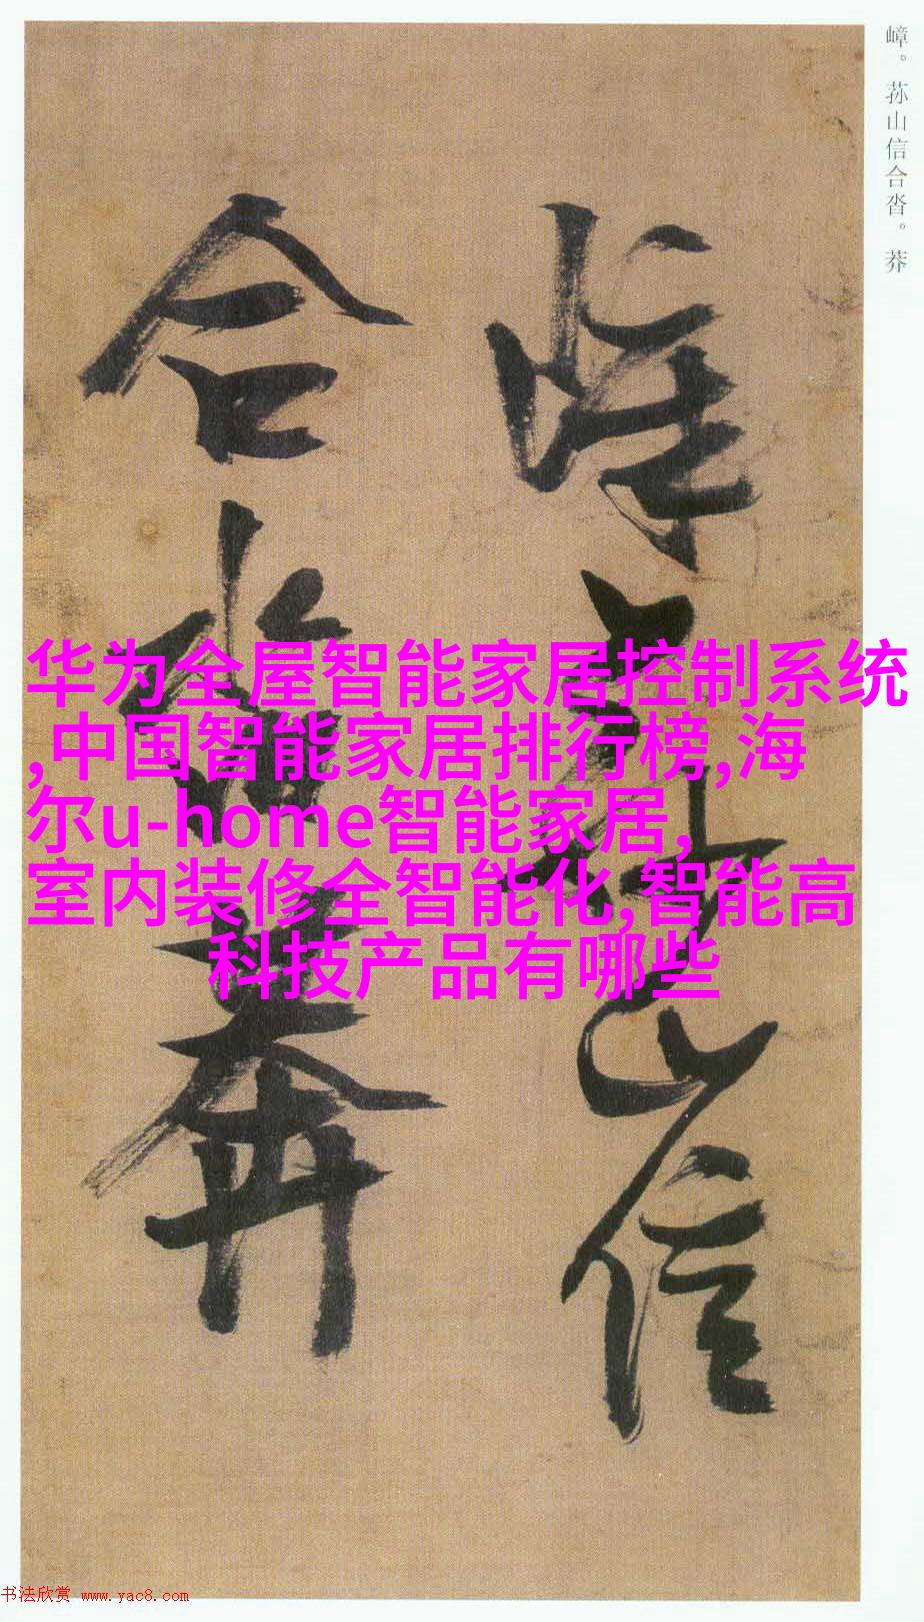 嶂。荪山信合沓。莽
嶂荪山信
合沓莽
华为全屋智能家居控制系统
,中国智能家居排行榜,海
尔u-home智能家居,
室内装修全智能化,智能高
科技产品有哪些
书法欣赏 www.yac8.com